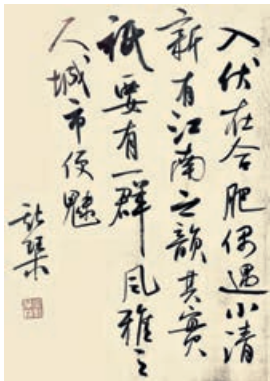 入伏在合肥偶遇小清
新有江南之韻其實
祇要有一群风雅之
人城市便魅